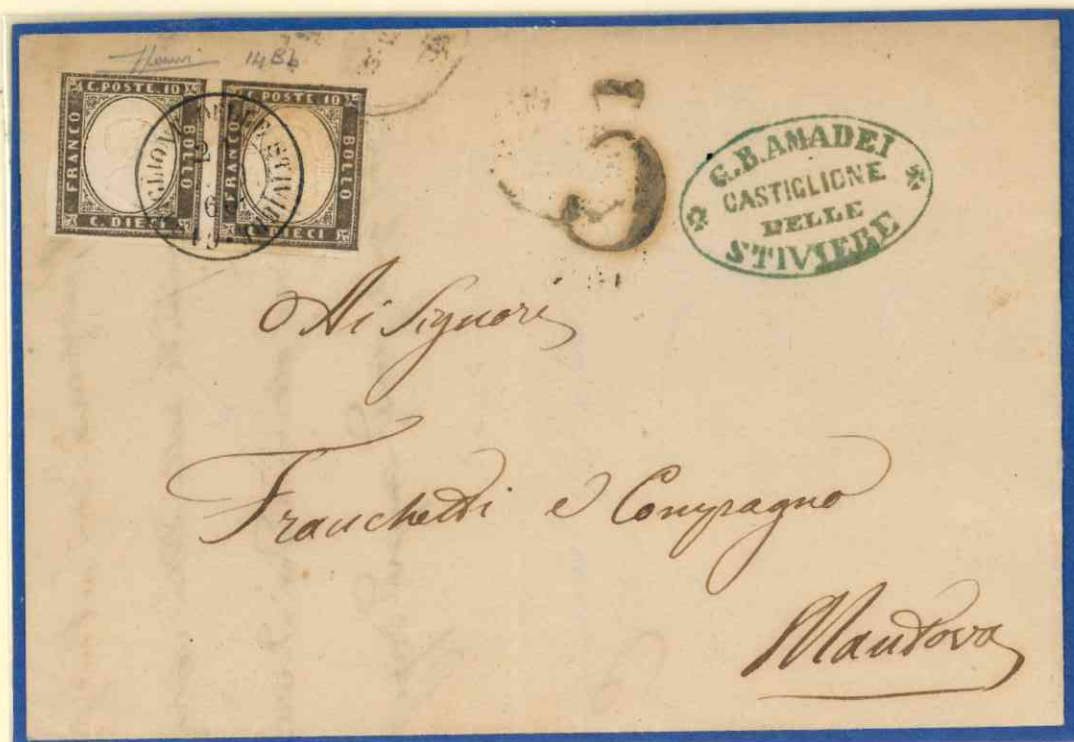 14Bb
C. POSTE 10
FRANCO
BOLLO
C. DIECI
C. POSTE 10
FRANCO
BOLLO
C. DIECI
5
G. B. AMADEI
CASTIGLIONE
DELLE
STIVIERE
Ai Signori
Franchetti e Compagno
Mantova